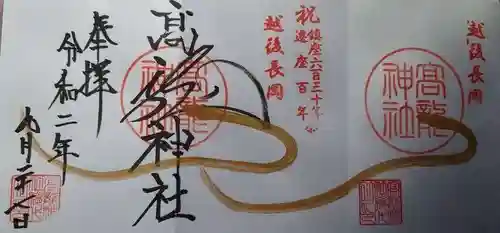 越後長岡
高龍神社
祝
鎮座六百三十年
遷座百年
越後長岡
高龍神社
高龍神社
奉拝
令和二年